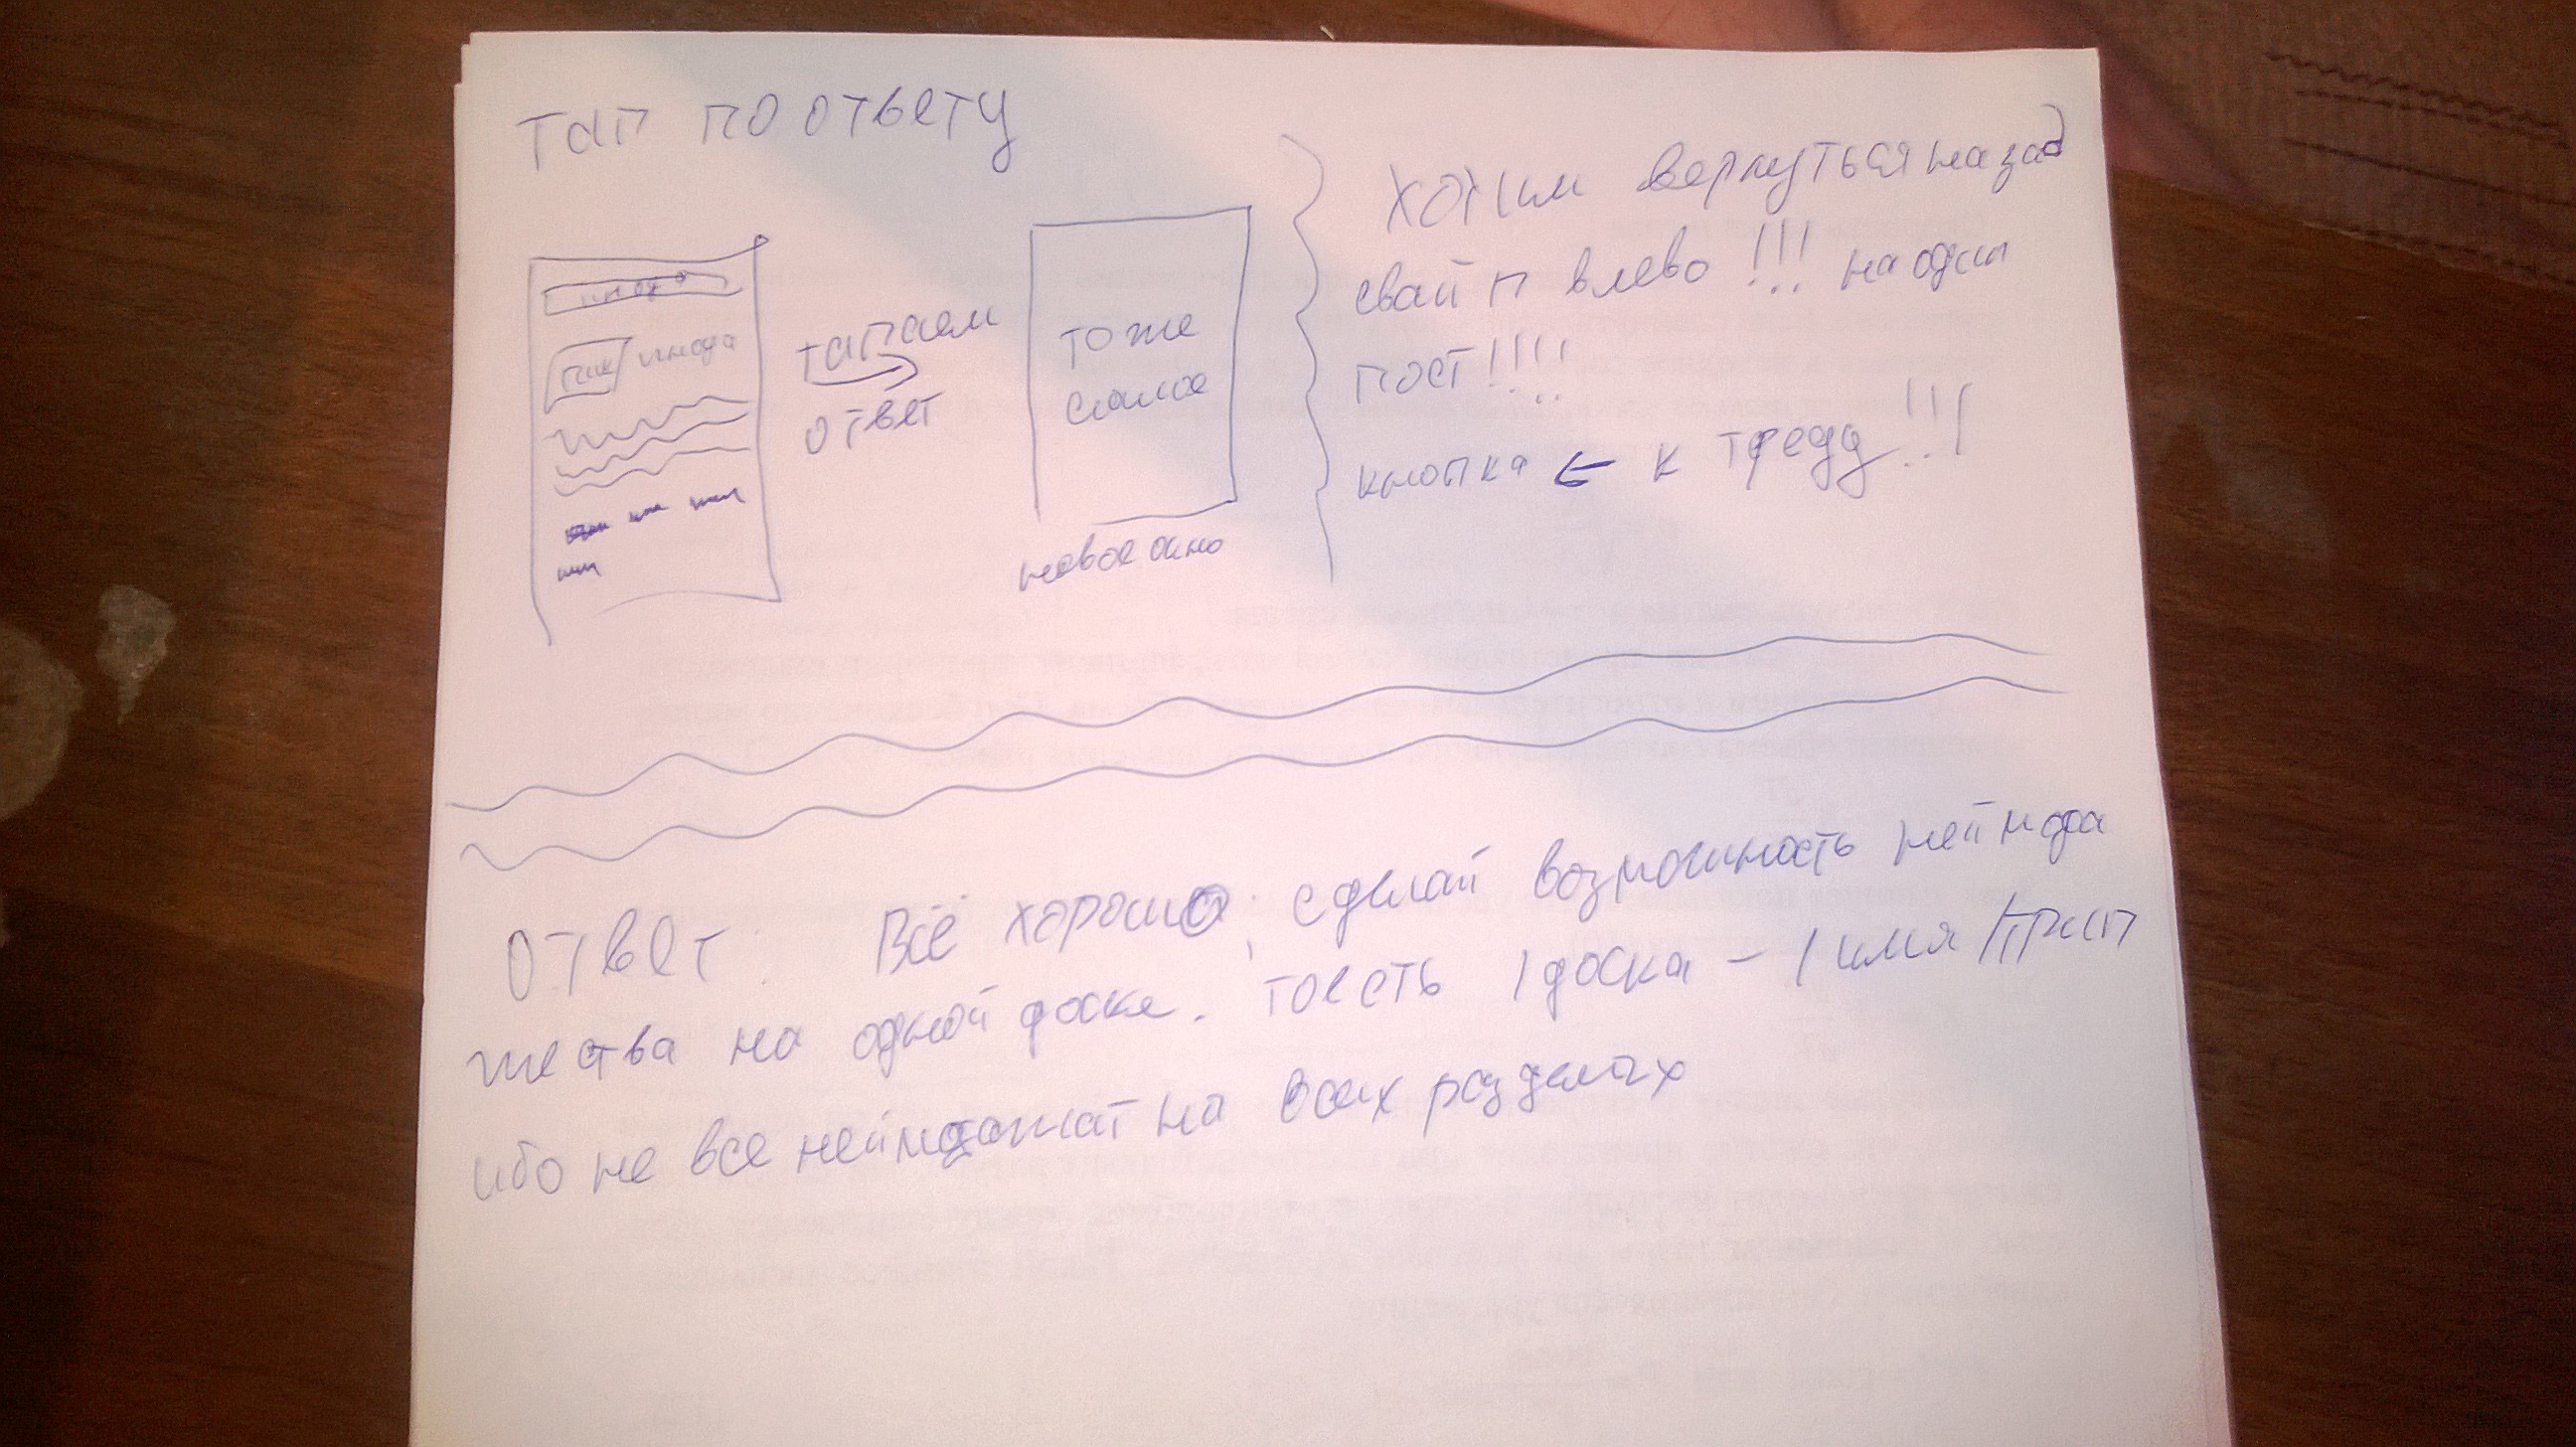 тап по ответу
инфа
пик инфа
тапаем
ответ
тоже
самое
новое окно
хотим вернуться назад
свайп влево !!! на один
пост!!!!
кнопка ← к треду!!!
ответ: Всё хорошо, сделай возможность неймфа
жества на одной доске. тоесть 1 доска - 1 имя/трип
ибо не все неймфажат на всех разделах